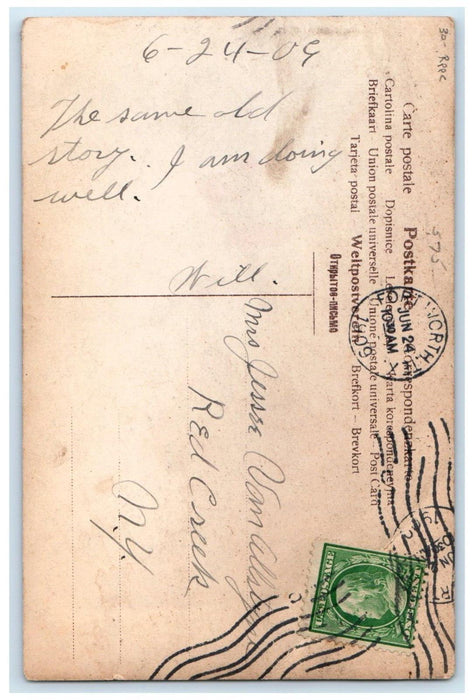 6-24-09
The same old
story. I am doing
well.
Will.
Carte postale
Postkarte Korrespondenzkarte
Cartolina postale Dopisnice
Briefkaart Union postale universelle Unione postale universale Post Card
Tarjeta postal Weltpostverein Brefkort - Brevkort
Открытое-письмо
Mrs Jesse
Red Creek
N.Y.
JUN 24
10 30 AM
1909
575
30- RPPC